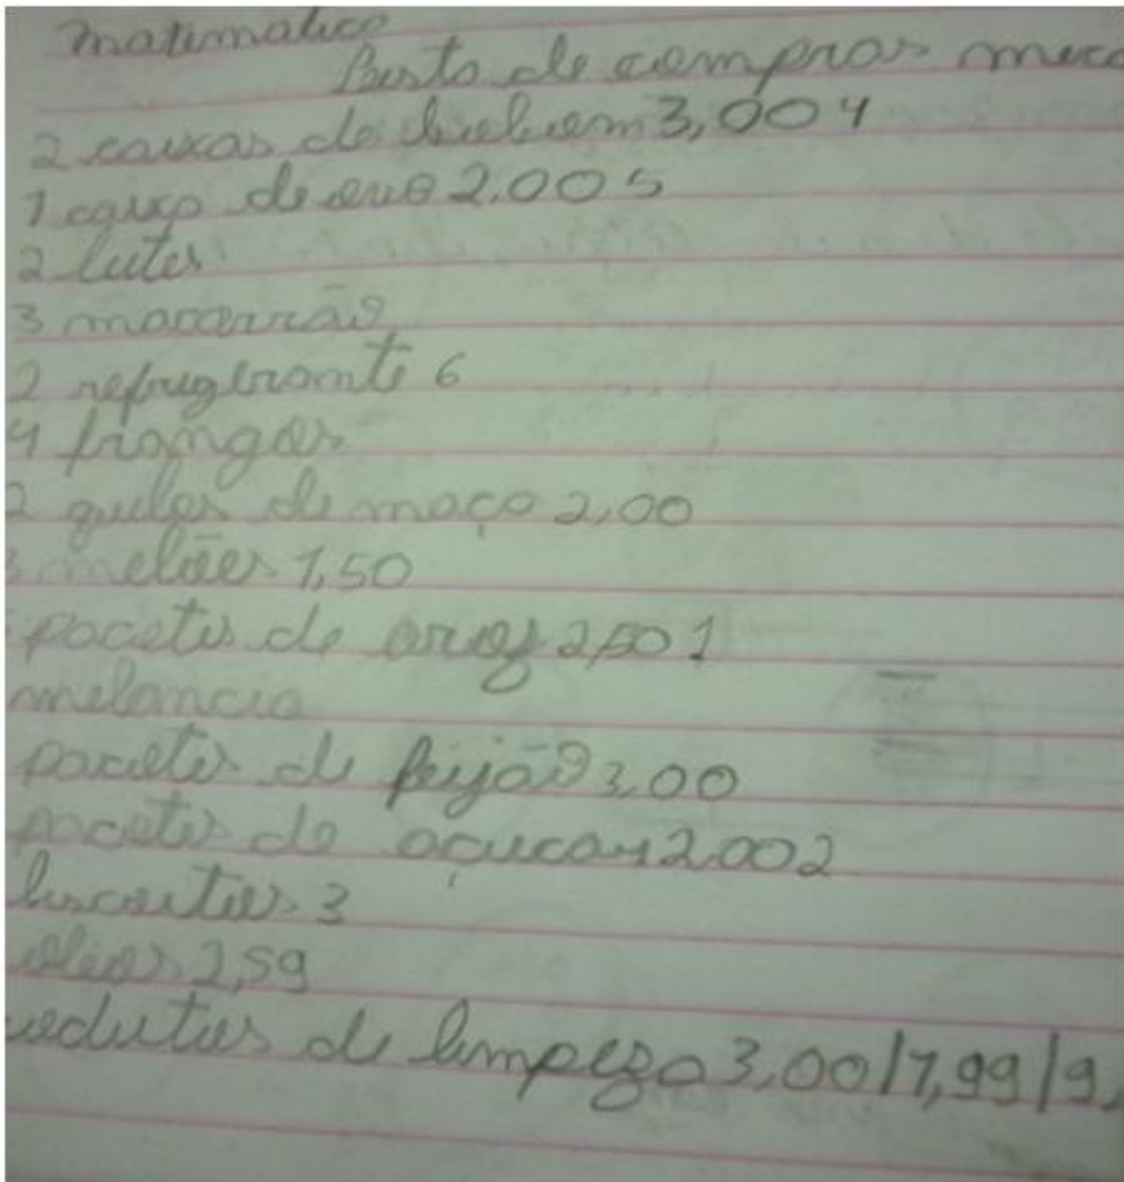 matematica
Lista de compras
2 caixas de bubuem 3,004
1 caixa de ovo 2.005
2 leites
3 macarrão
2 refrigirante 6
4 frangos
2 quilos de maça 2,00
melões 1,50
pacetes de aroz 2,50 1
melancia
pacetes de feijão 3,00
pacetes de açucar 2.002
biscoitos 3
oleos 2,59
de limpeza 3,00/7,99/9,